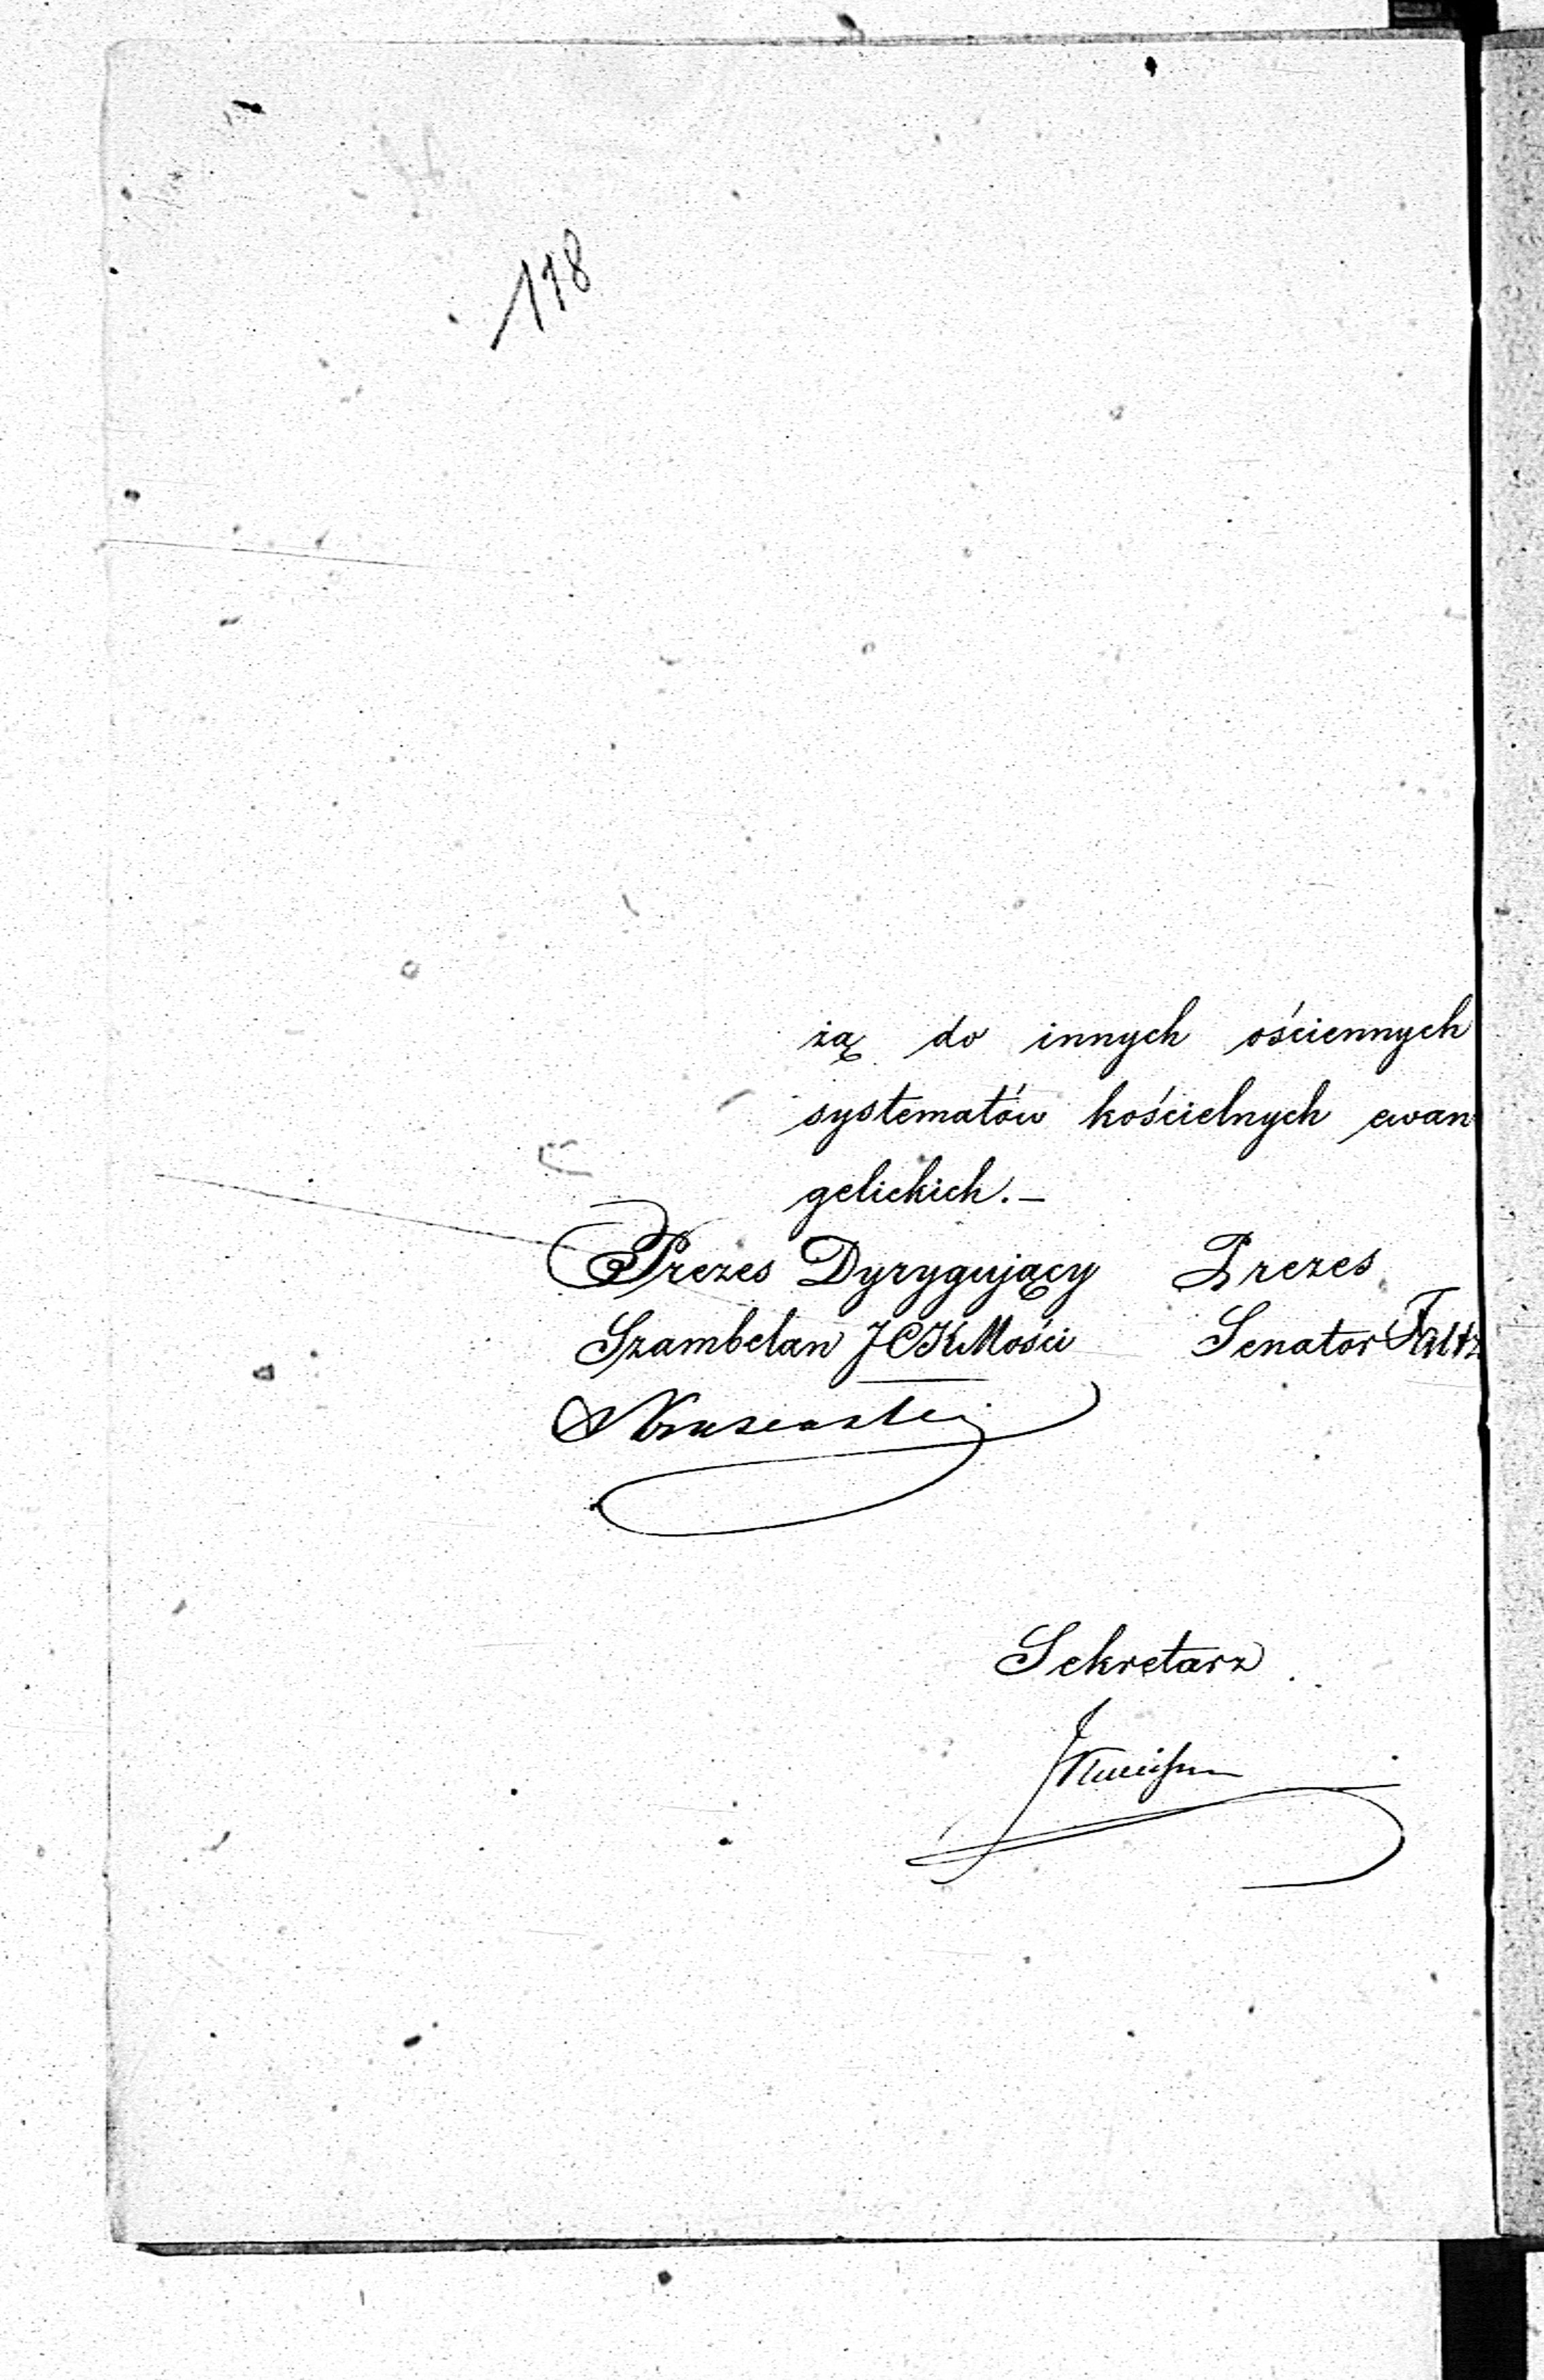 118
żą do innych ościennych
systematów kościelnych ewan
gelickich.—
Prezes Dyrygujący Prezes
Szambelan JCKMości Senator
Sekretarz